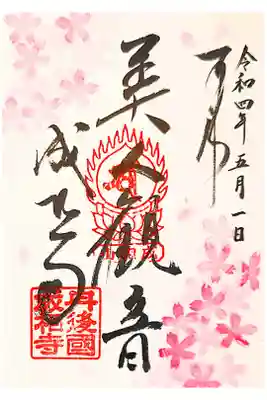 令和四年五月一日
奉拝
美人觀音
成相寺
丹後國
成相寺